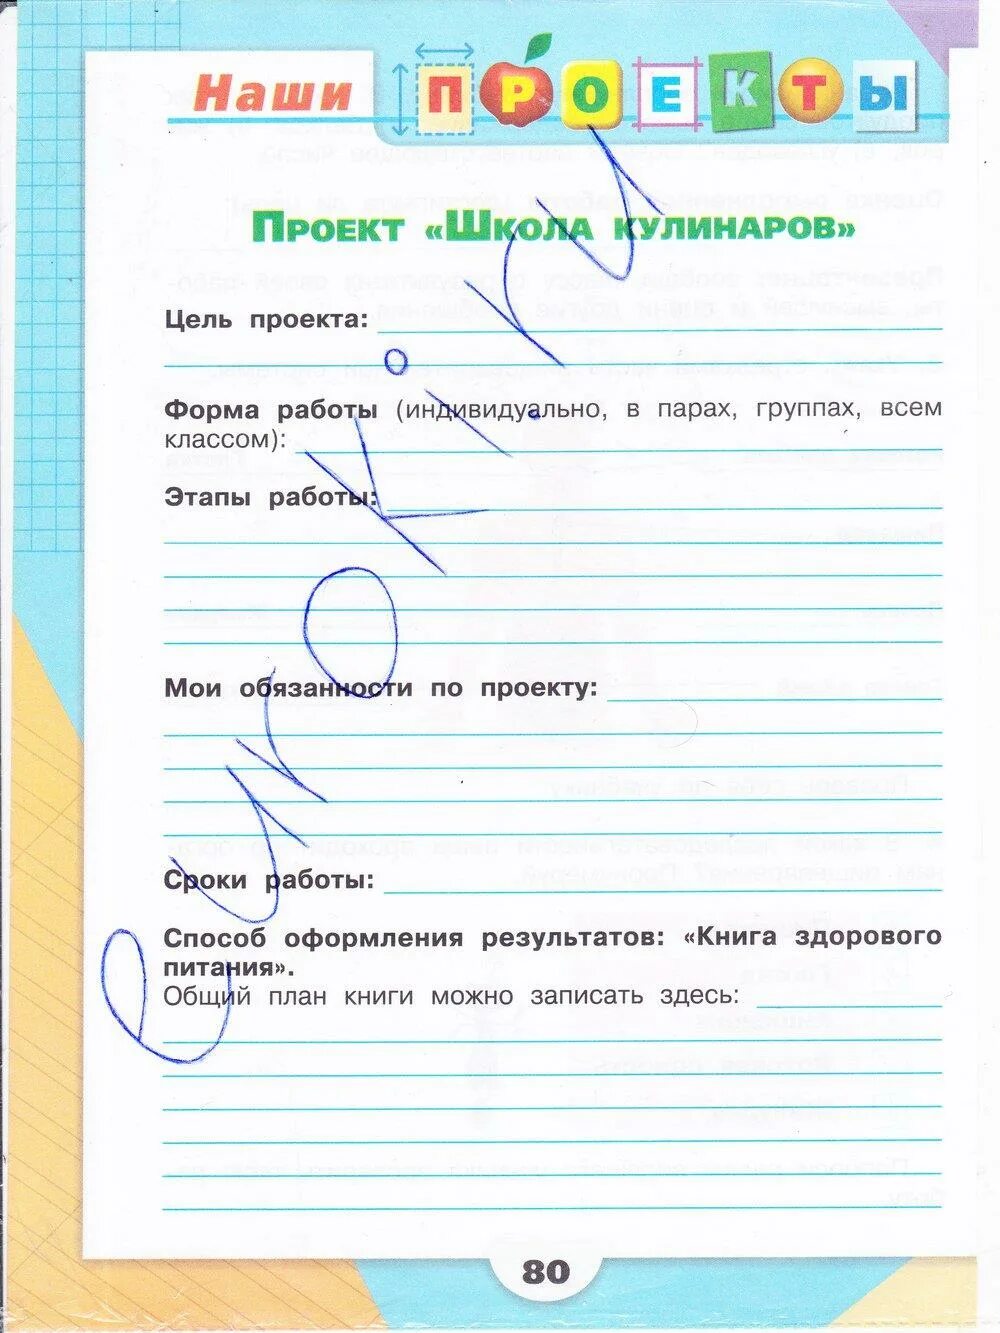 Наши ПРОЕКТЫ
Проект «Школа кулинаров»
Цель проекта:
Форма работы (индивидуально, в парах, группах, всем
классом):
Этапы работы:
Мои обязанности по проекту:
Сроки работы:
Способ оформления результатов: «Книга здорового
питания».
Общий план книги можно записать здесь:
80
euroki.ru